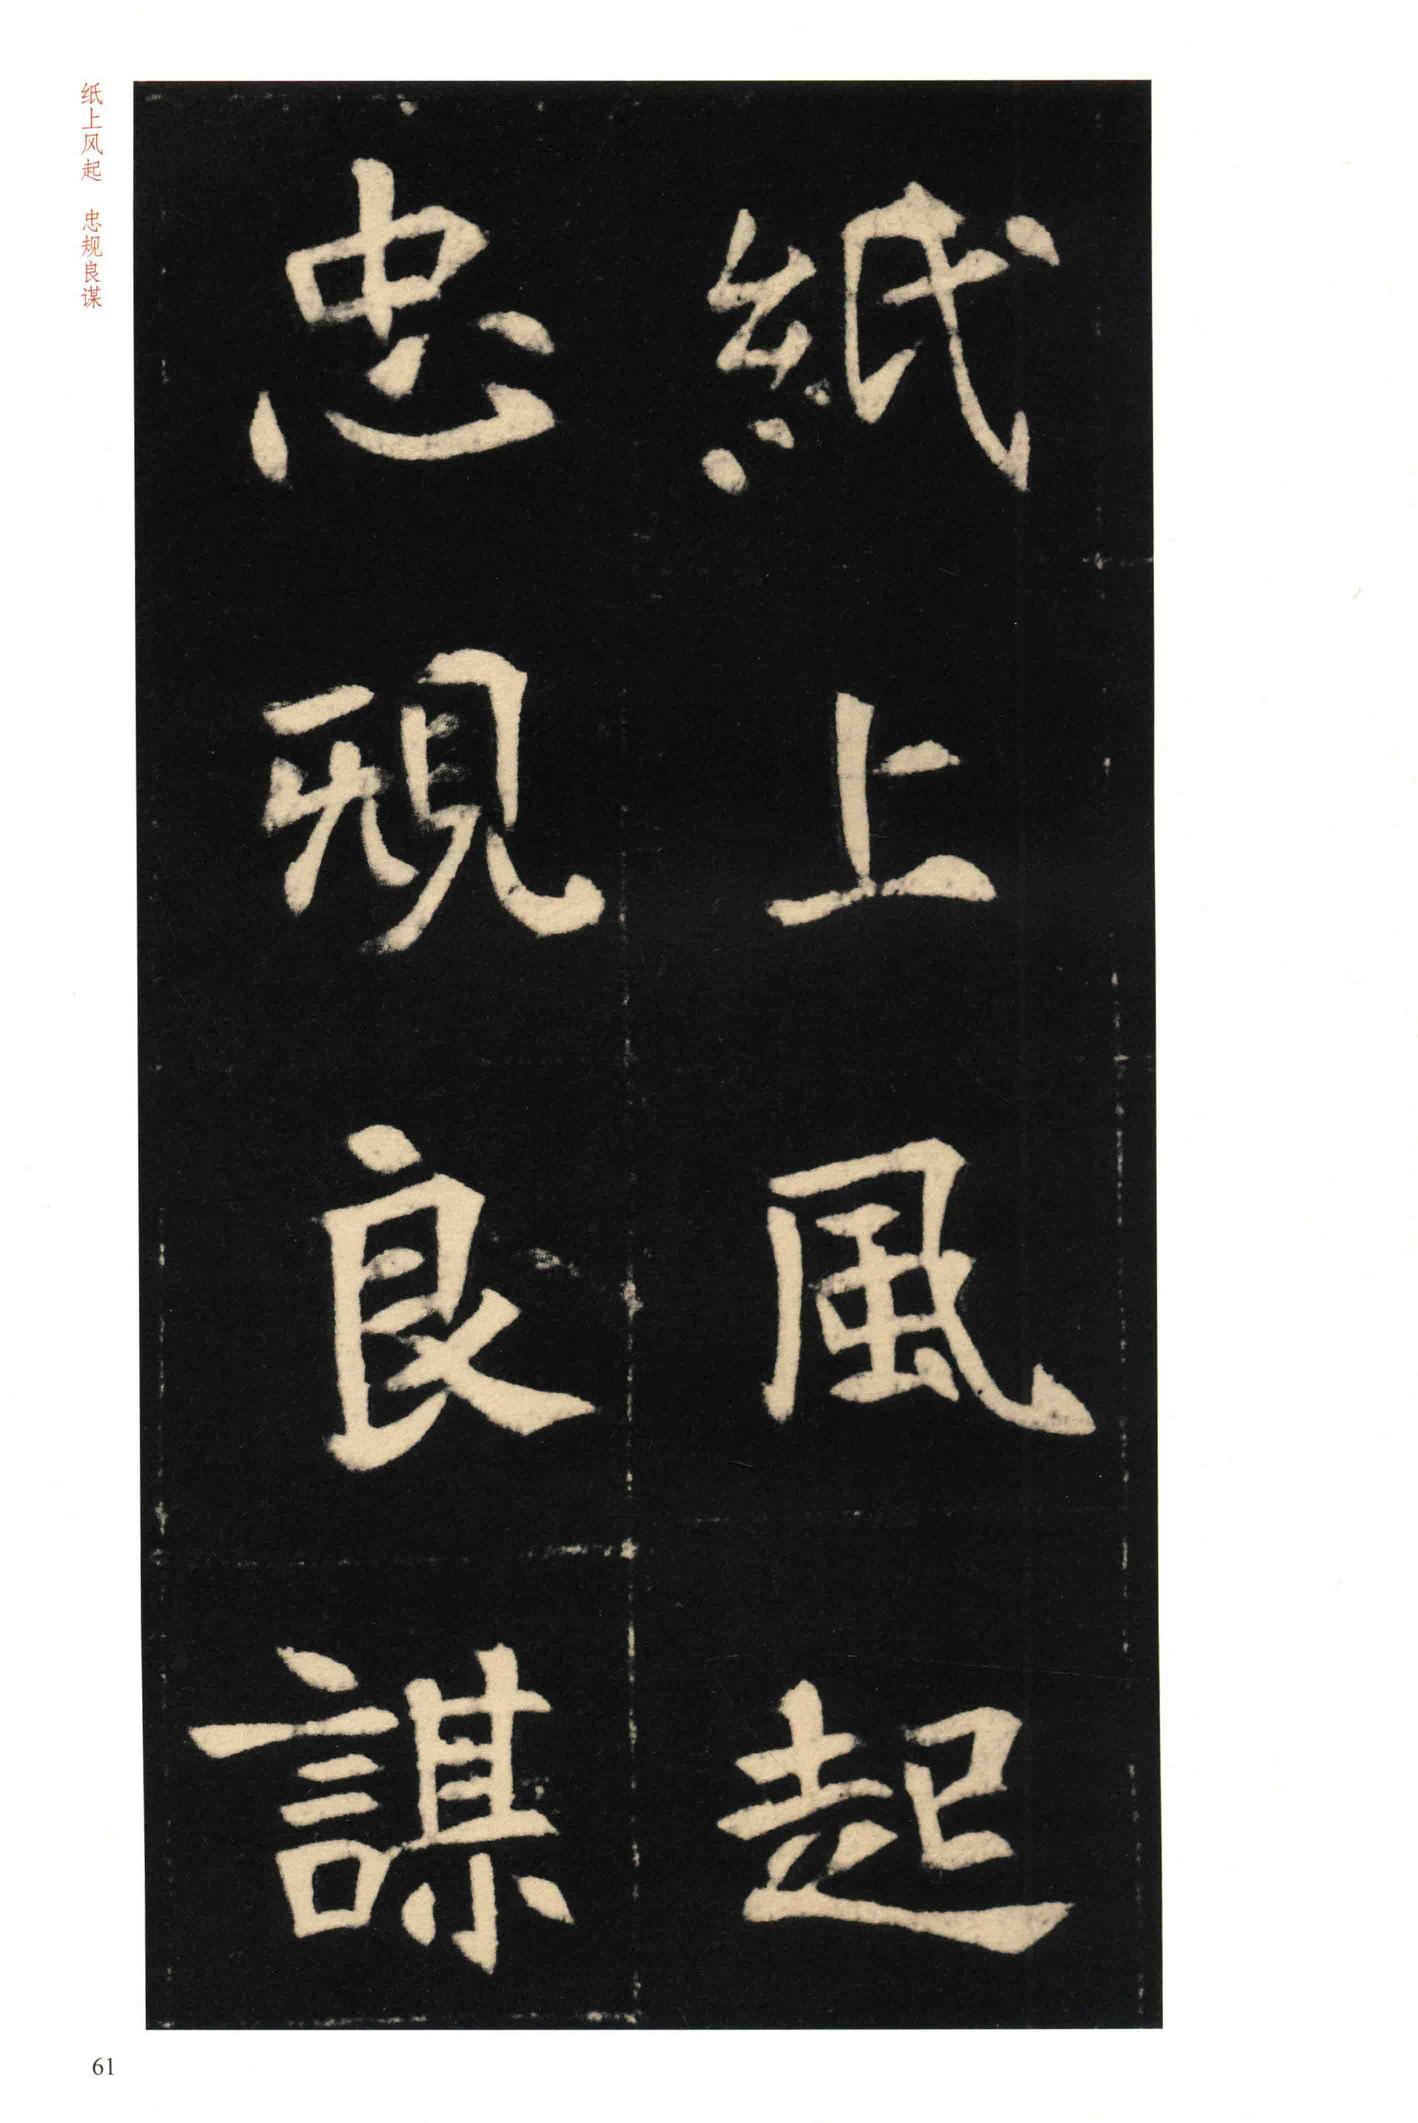 紙上風起
忠規良謀
纸上风起 忠规良谋
61